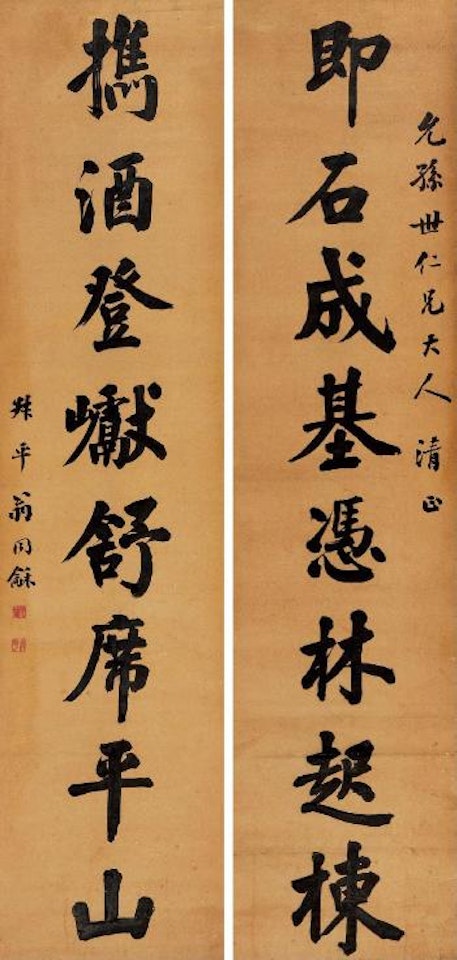 允孫世仁兄大人 清正
即石成基憑林起棟
擕酒登巘舒席平山
叔平翁同龢